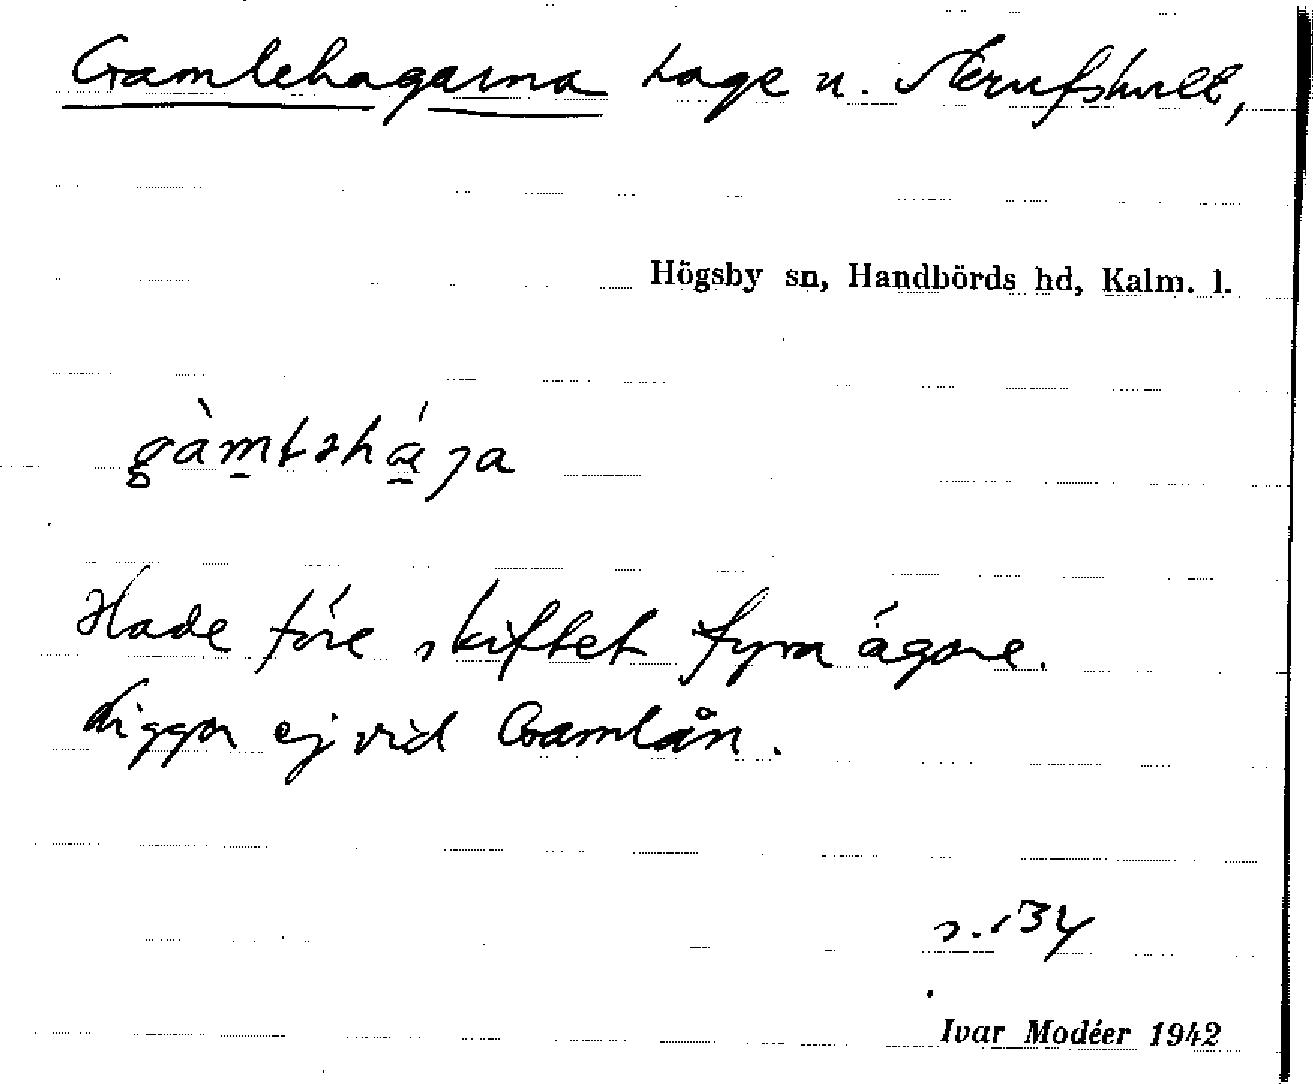 Gamlehagarna hage u.
Högsby sn, Handbörds hd, Kalm. l.
Hade före skiftet fyra ägare.
Ligger ej vid Gamlån.
s. 134
Ivar Modéer 1942